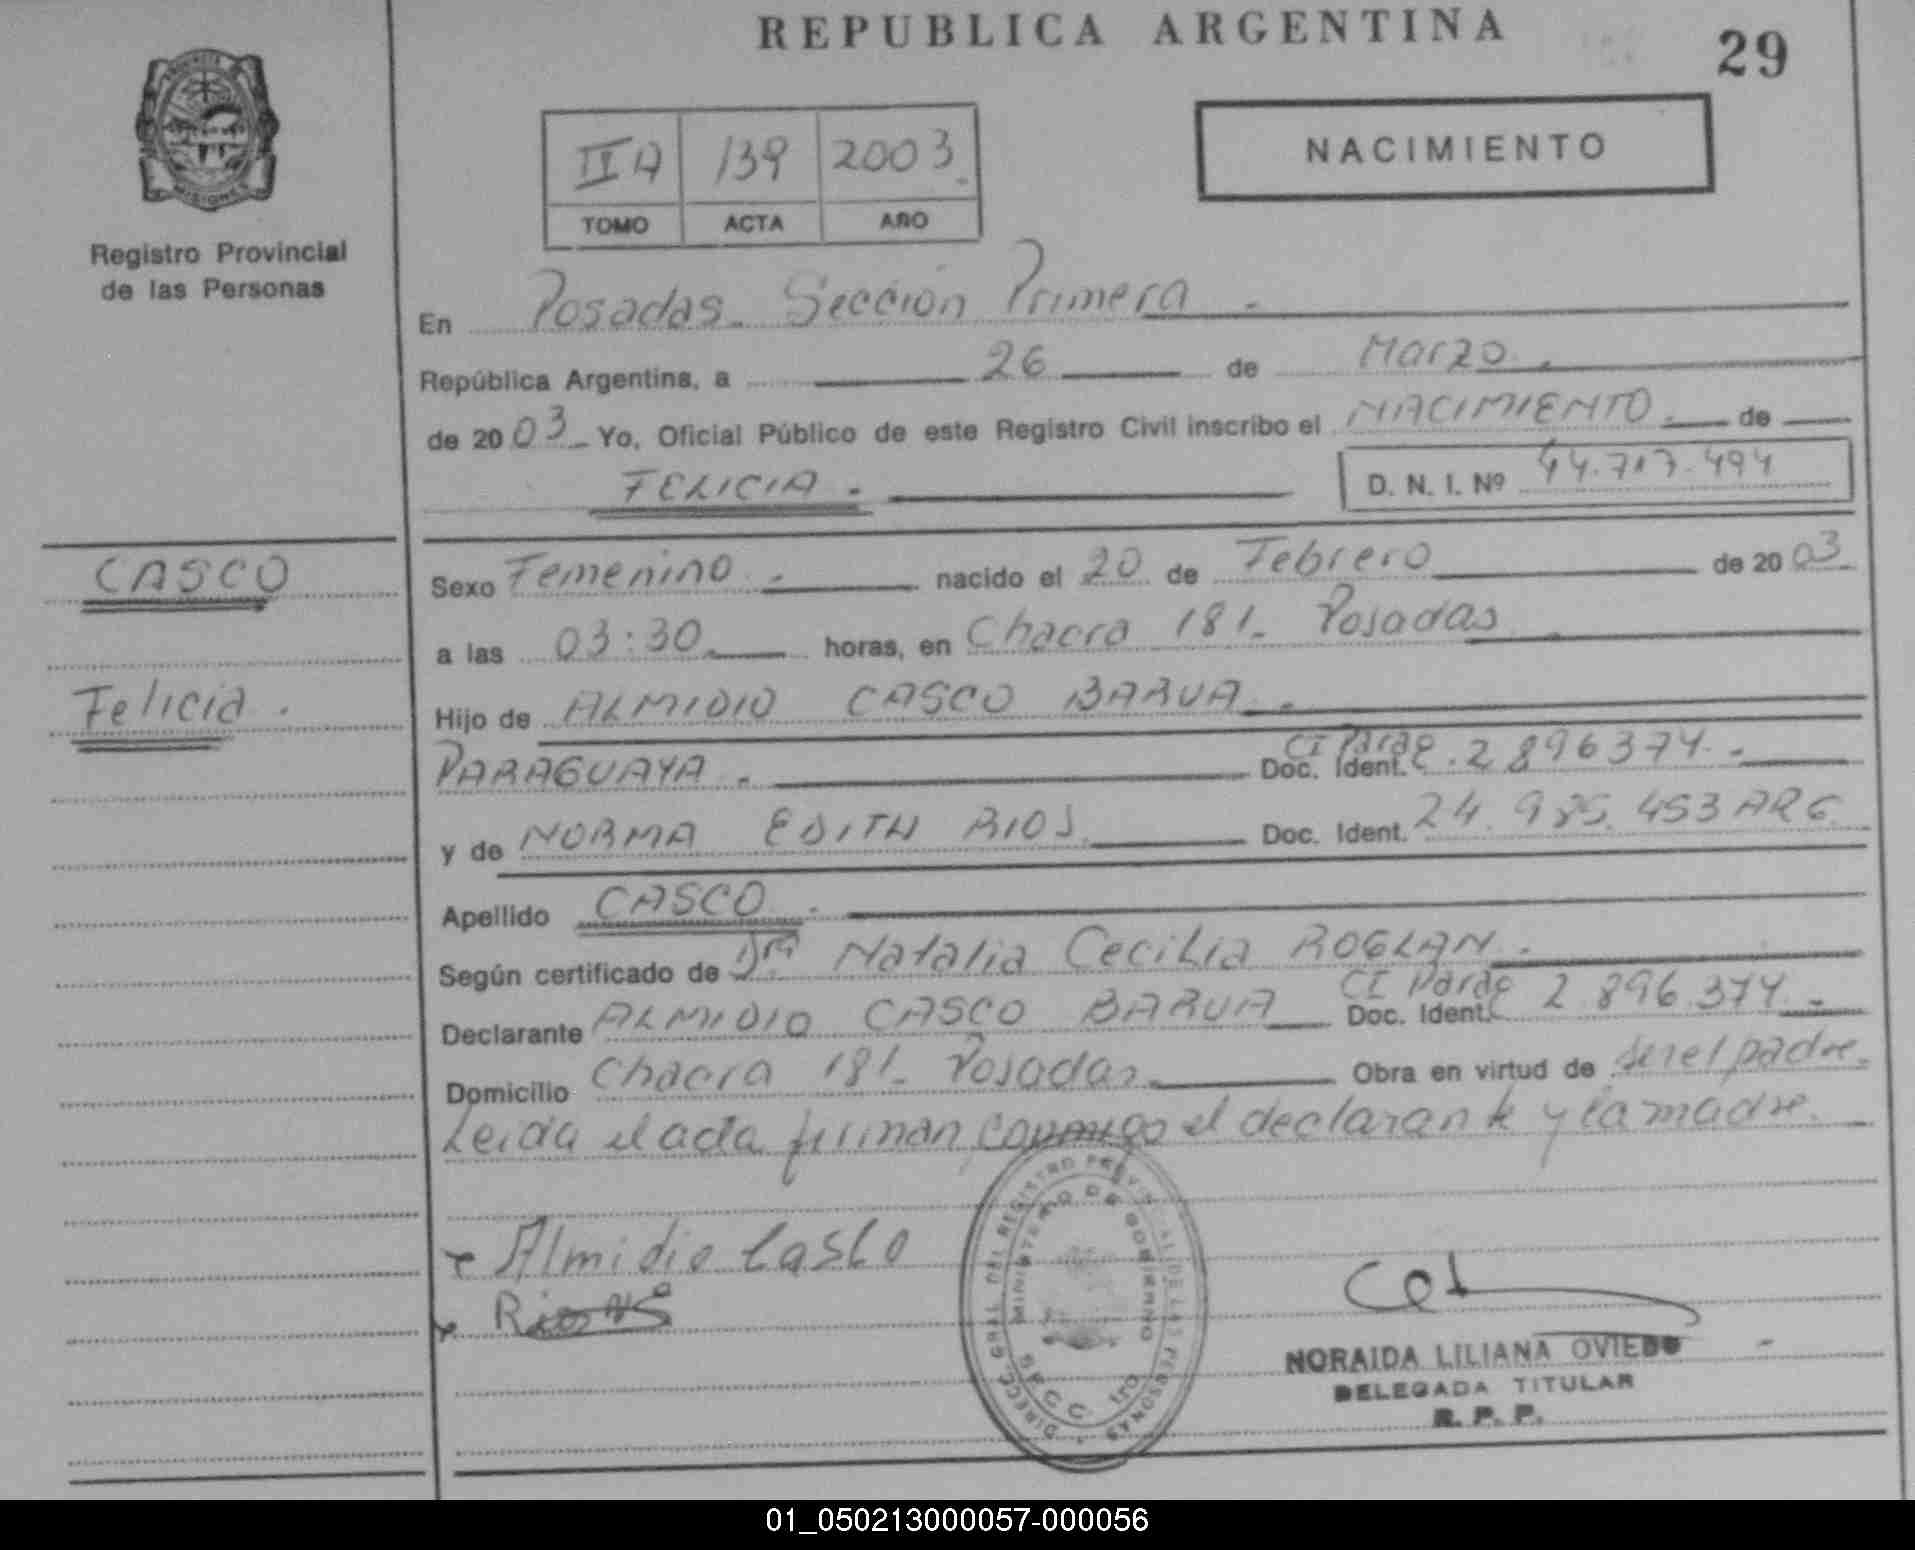 REPUBLICA ARGENTINA
29
Registro Provincial
de las Personas
IIA 139 2003
TOMO ACTA AÑO
NACIMIENTO
En Posadas. Sección Primera.
República Argentina, a 26 de Marzo.
de 2003 Yo, Oficial Público de este Registro Civil inscribo el NACIMIENTO. de
FELICIA.
D. N. I. Nº 44.717.494
CASCO
Felicia.
Sexo Femenino. nacido el 20 de Febrero de 2003.
a las 03:30 horas, en Chacra 181. Posadas.
Hijo de ALMIDIO CASCO BARUA.
PARAGUAYA. Doc. Ident. CI Parag. 2896374.
y de NORMA EDITH RIOS. Doc. Ident. 24.985.453 ARG.
Apellido CASCO.
Según certificado de Dra Natalia Cecilia ROGLAN.
Declarante ALMIDIO CASCO BARUA Doc. Ident. CI Parag 2.896.374.
Domicilio Chacra 181. Posadas. Obra en virtud de ser el padre.
Leida el acta firman conmigo el declarante y la madre.
Almidio Casco
NORAIDA LILIANA OVIEDO
DELEGADA TITULAR
R. P. P.
DIRECC. GRAL. DEL REGISTRO PROVINCIAL DE LAS PERSONAS
MINISTERIO DE GOBIERNO
SECC. 1ro
01_050213000057-000056